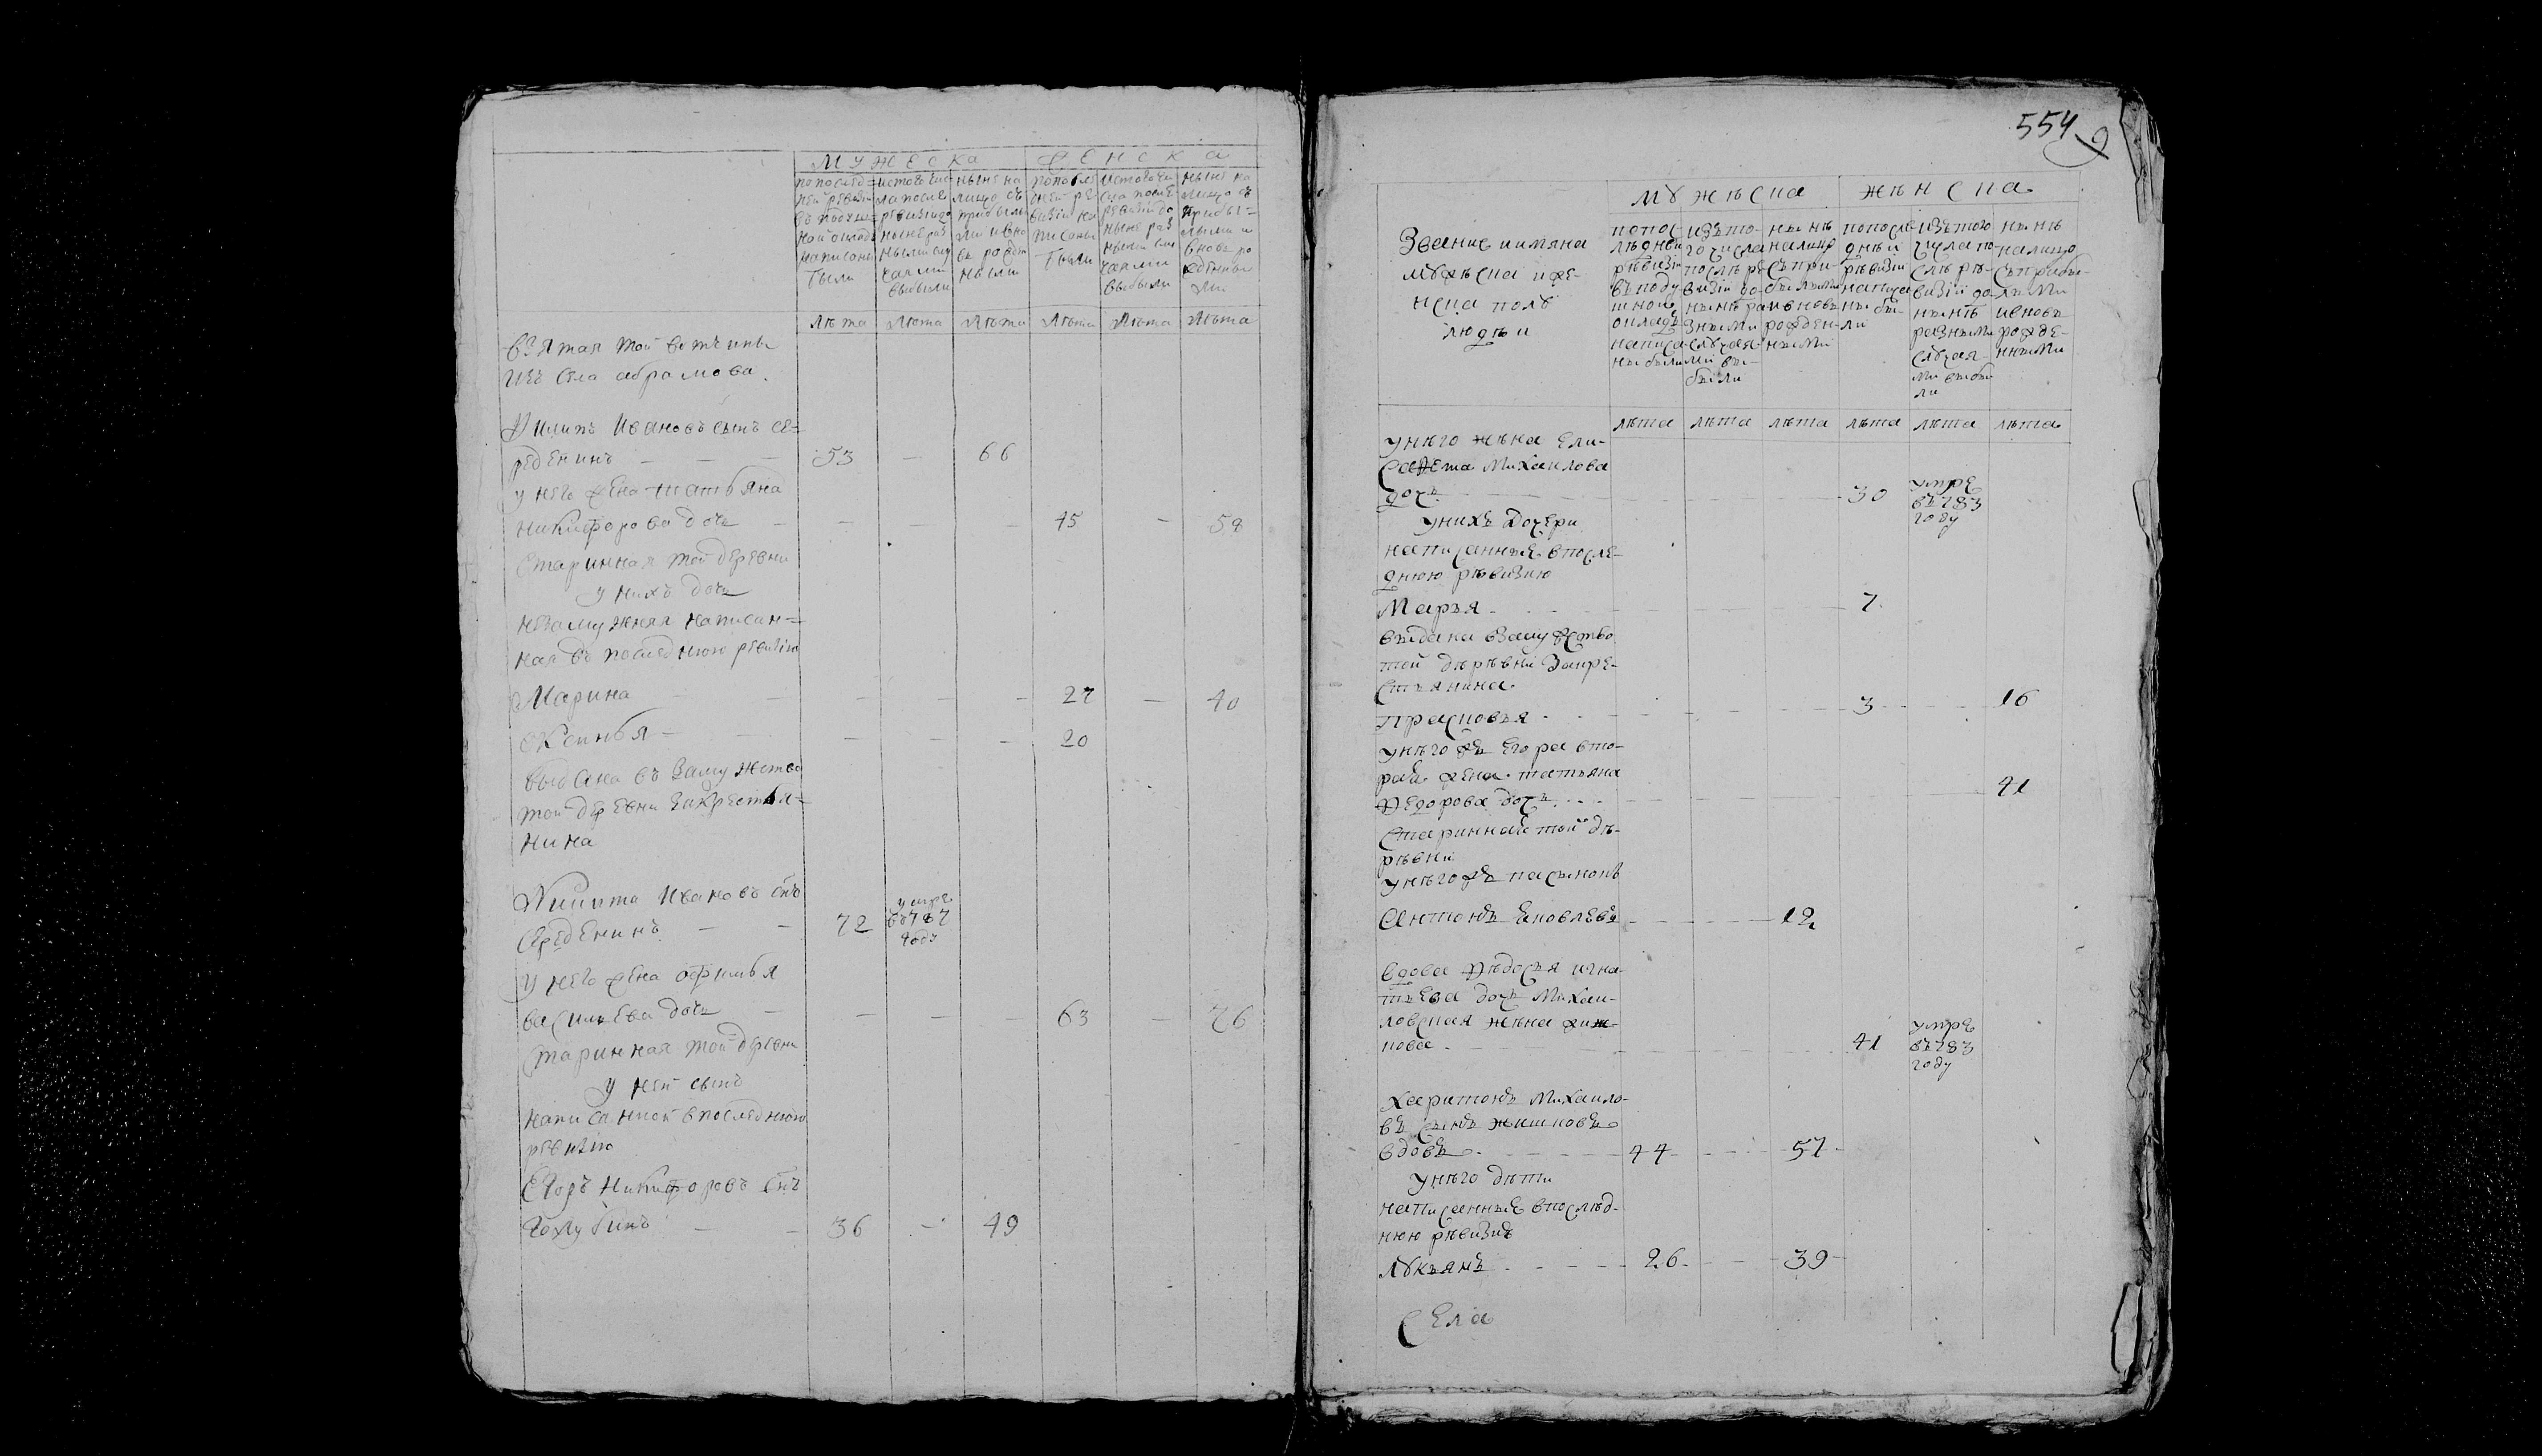 мужеска женска
по послед=
ней ревизи
въ подуш=
ной окладъ
написаны
были
ис того чис=
ла после
ревизии до
ныне раз
ными слу
чаями
выбыли
ныне на
лицо съ
прибылы
ми и вно
въ рожден
ными
по после
дней ре
визии на
писаны
были
ис того чи
сла после
ревизии до
ныне раз
ными слу
чаями
выбыли
ныне на
лицо съ
прибы=
лыми и
вновь ро
жденны
ми
лѣта лѣта лѣта лѣта лѣта лѣта
взятая той вотчины
изъ села абрамова
Филипъ Ивановъ сынъ се=
рединъ — — 53 — 66
у него жена татьяна
никифорова дочь — — — — 45 — 58
старинная той деревни
у нихъ дочь
незамужняя написан=
ная въ последнюю ревизию
Марина — — — — 27 — 40
Оксинья — — — — 20
выдана въ замужство
той деревни за крестья=
нина
Никита Ивановъ снъ
Середенинъ — — 72 умре
въ 787
году
у него жена офимья
васильева дочь — — — — 63 — 76
старинная той деревни
у ней сынъ
написанной в последнюю
ревизию
Егоръ Никифоровъ снъ
Голубинъ — — 36 — 49
554
9
мужеска женска
Звание и имяна
мужеска и же-
нска полу
людѣи
попос-
лѣднеи
рѣвизи
въ поду
шной
окладъ
написа-
ны были
изъ то-
го числа
послѣ ре
визии до-
нынѣ ра
зными
случая-
ми вы-
были
нынѣ
налицо
съ при-
былыми
и вновь
рожден-
ными
попосле
днѣи
рѣвизии
написа
ны бы-
ли
изъ того
числа по-
слѣ рѣ-
визии до-
нынѣ
разными
случая-
ми выбы
ли
нынѣ
налицо
съ прибы-
лыми
и вновь
рожде-
нными
лѣта лѣта лѣта лѣта лѣта лѣта
у нѣго жѣна Ели-
савета Михаилова
дочь 30 умре
въ 783
году
у нихъ дочери
написанные в после-
днюю рѣвизию
Марья 7
выдана в замужство
той дѣрѣвни за кре-
стьянина
Прасковья 3 16
у нѣго жъ Егора вто-
рая жена татьяна
Федорова дочь 41
старинная той дѣ-
рѣвни
у нѣго жъ пасынокъ
Антонъ Яковлевъ 12
вдова Фѣдосья игна-
тьева дочь Михаи-
ловская жѣна жиж-
нова 41 умре
въ 783
году
Харитонъ Михаило-
въ сынъ жишковъ
вдовъ 44 57
у нѣго дѣти
написанные в послѣд-
нюю рѣвизию
Лукьянъ 26 39
Села